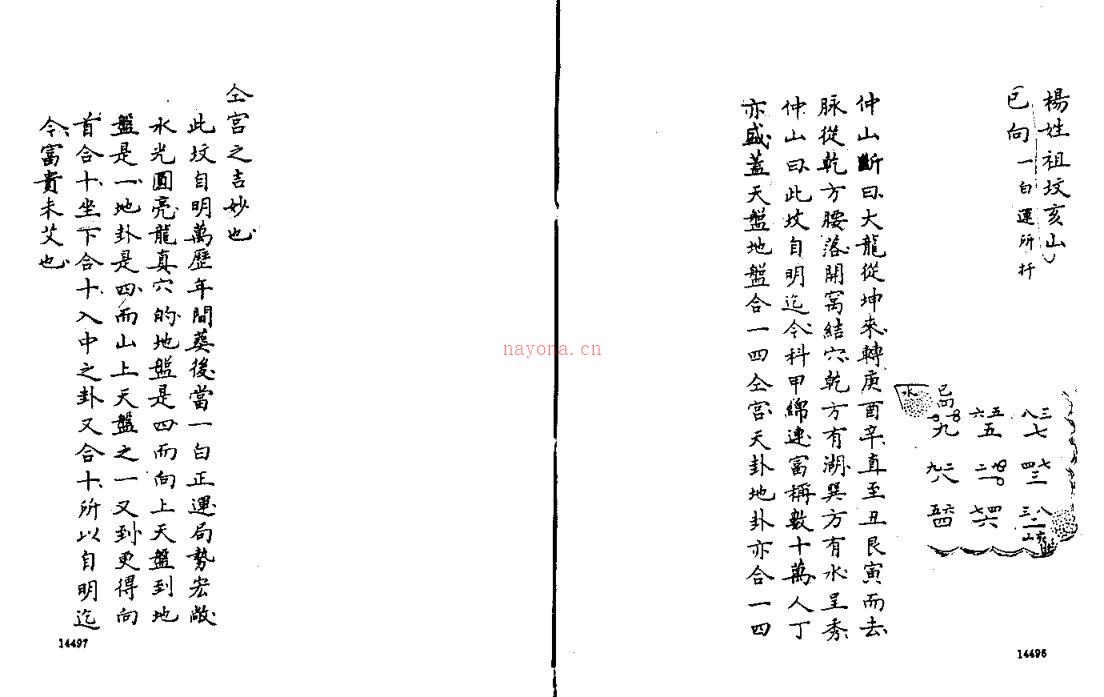 楊姓祖坟亥山
巳向一白運所扞
巳向
水
三
八
七
五
六
五
九
七
四
三
二
一
二
九
八
八
三
二
四
七
六
六
五
四
亥
山
仲山斷曰大龍從坤來轉庚酉辛直至丑艮寅而去
脉從乾方腰落開窩結穴乾方有湖巽方有水呈秀
仲山曰此坟自明迄今科甲綿連富稱數十萬人丁
亦盛蓋天盤地盤合一四仝宫天卦地卦亦合一四
14496
仝宫之吉妙也
此坟自明萬歷年間葬後當一白正運局勢宏敞
水光圓亮龍真穴的地盤是四而向上天盤到地
盤是一地卦是四而山上天盤之一又到更得向
首合十坐下合十入中之卦又合十所以自明迄
今富貴未艾也
14497
nayona.cn